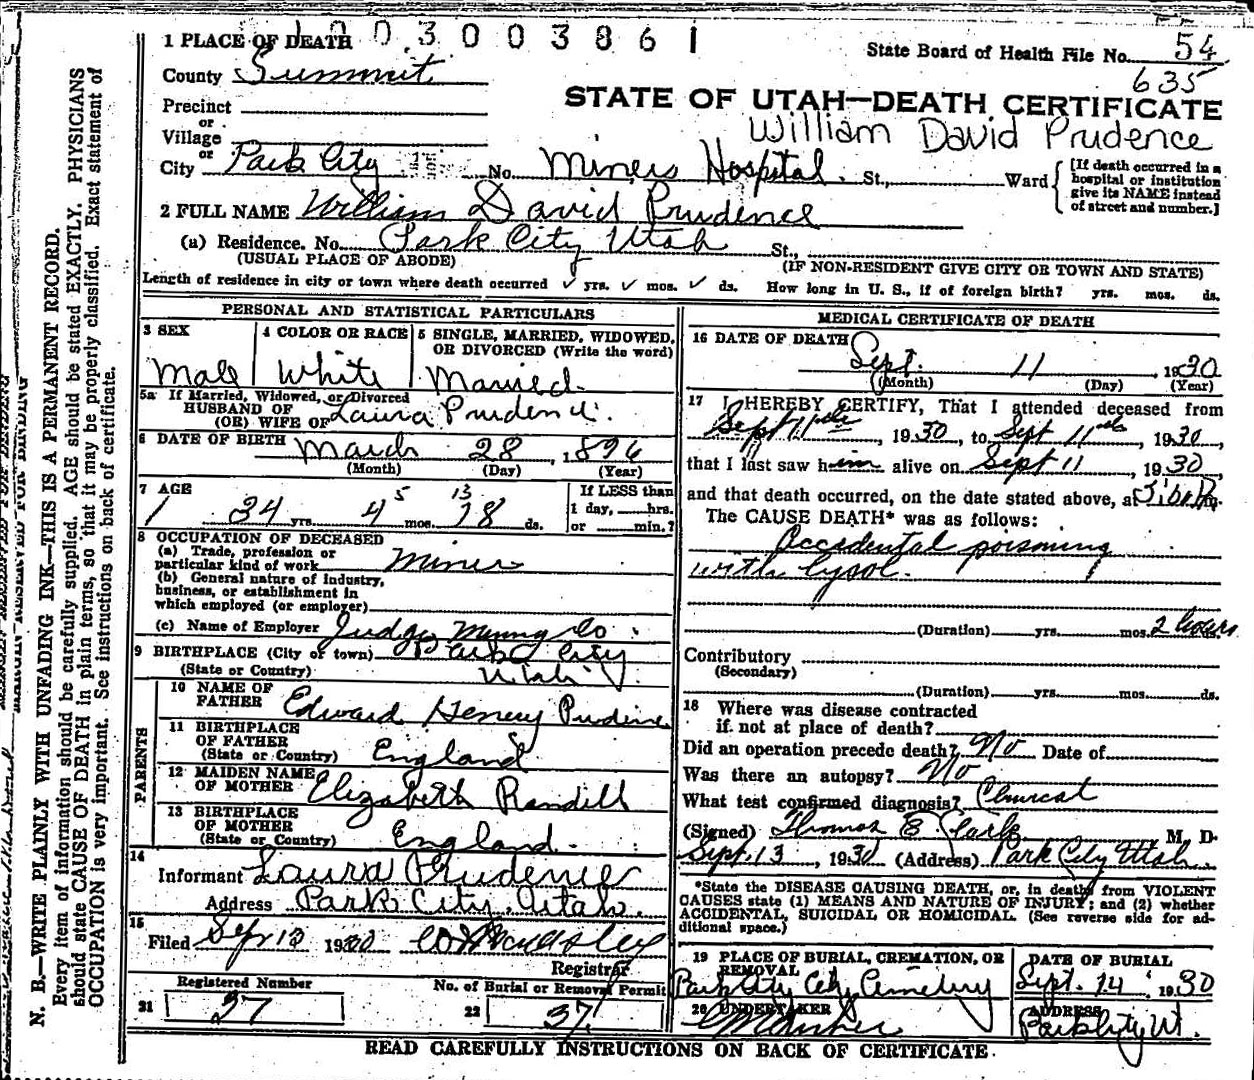 1003003861
1 PLACE OF DEATH
State Board of Health File No. 54
County Summit
635
Precinct
STATE OF UTAH—DEATH CERTIFICATE
or
Village
William David Prudence
or
City Park City No. Miners Hospital. St., Ward
[If death occurred in a
hospital or institution
give its NAME instead
of street and number.]
2 FULL NAME William David Prudence
(a) Residence. No. Park City Utah St.,
(USUAL PLACE OF ABODE) (IF NON-RESIDENT GIVE CITY OR TOWN AND STATE)
Length of residence in city or town where death occurred ✓ yrs. ✓ mos. ✓ ds. How long in U. S., if of foreign birth? yrs. mos. ds.
PERSONAL AND STATISTICAL PARTICULARS
3 SEX
Male
4 COLOR OR RACE
White
5 SINGLE, MARRIED, WIDOWED,
OR DIVORCED (Write the word)
Married
5a If Married, Widowed, or Divorced
HUSBAND OF
(OR) WIFE OF Laura Prudence.
6 DATE OF BIRTH March 28, 1896
(Month) (Day) (Year)
7 AGE
5 13
34 yrs. 4 mos. 18 ds.
If LESS than
1 day, hrs.
or min.?
8 OCCUPATION OF DECEASED
(a) Trade, profession or
particular kind of work Miner
(b) General nature of industry,
business, or establishment in
which employed (or employer)
(c) Name of Employer Judge Mining Co.
9 BIRTHPLACE (City or town) Park City
(State or Country) Utah
PARENTS
10 NAME OF
FATHER Edward Henery Prudence
11 BIRTHPLACE
OF FATHER
(State or Country) England
12 MAIDEN NAME
OF MOTHER Elizabeth Randill
13 BIRTHPLACE
OF MOTHER
(State or Country) England.
14
Informant Laura Prudence
Address Park City. Utah.
15
Filed Sep 13 1930
Registrar
Registered Number
21 37
No. of Burial or Removal Permit
22 37
MEDICAL CERTIFICATE OF DEATH
16 DATE OF DEATH
Sept. 11, 1930
(Month) (Day) (Year)
17 I HEREBY CERTIFY, That I attended deceased from
Sept 11th, 1930, to Sept 11th, 1930,
that I last saw him alive on Sept 11, 1930,
and that death occurred, on the date stated above, at m.
The CAUSE DEATH* was as follows:
Accidental poisoning
with lysol.
(Duration) yrs. mos. 2 hours
Contributory
(Secondary)
(Duration) yrs. mos. ds.
18 Where was disease contracted
if not at place of death?
Did an operation precede death? No Date of
Was there an autopsy? No
What test confirmed diagnosis? Clinical
(Signed) Thomas E. M. D.
Sept. 13, 1930 (Address) Park City Utah.
*State the DISEASE CAUSING DEATH, or, in deaths from VIOLENT
CAUSES state (1) MEANS AND NATURE OF INJURY; and (2) whether
ACCIDENTAL, SUICIDAL OR HOMICIDAL. (See reverse side for ad-
ditional space.)
19 PLACE OF BURIAL, CREMATION, OR
REMOVAL
Park City City Cemetery
DATE OF BURIAL
Sept. 14 1930
20 UNDERTAKER
ADDRESS
Park City Ut.
READ CAREFULLY INSTRUCTIONS ON BACK OF CERTIFICATE.
N. B.—WRITE PLAINLY WITH UNFADING INK—THIS IS A PERMANENT RECORD.
Every item of information should be carefully supplied. AGE should be stated EXACTLY. PHYSICIANS
should state CAUSE OF DEATH in plain terms, so that it may be properly classified. Exact statement of
OCCUPATION is very important. See instructions on back of certificate.
MARGIN RESERVED FOR BINDING